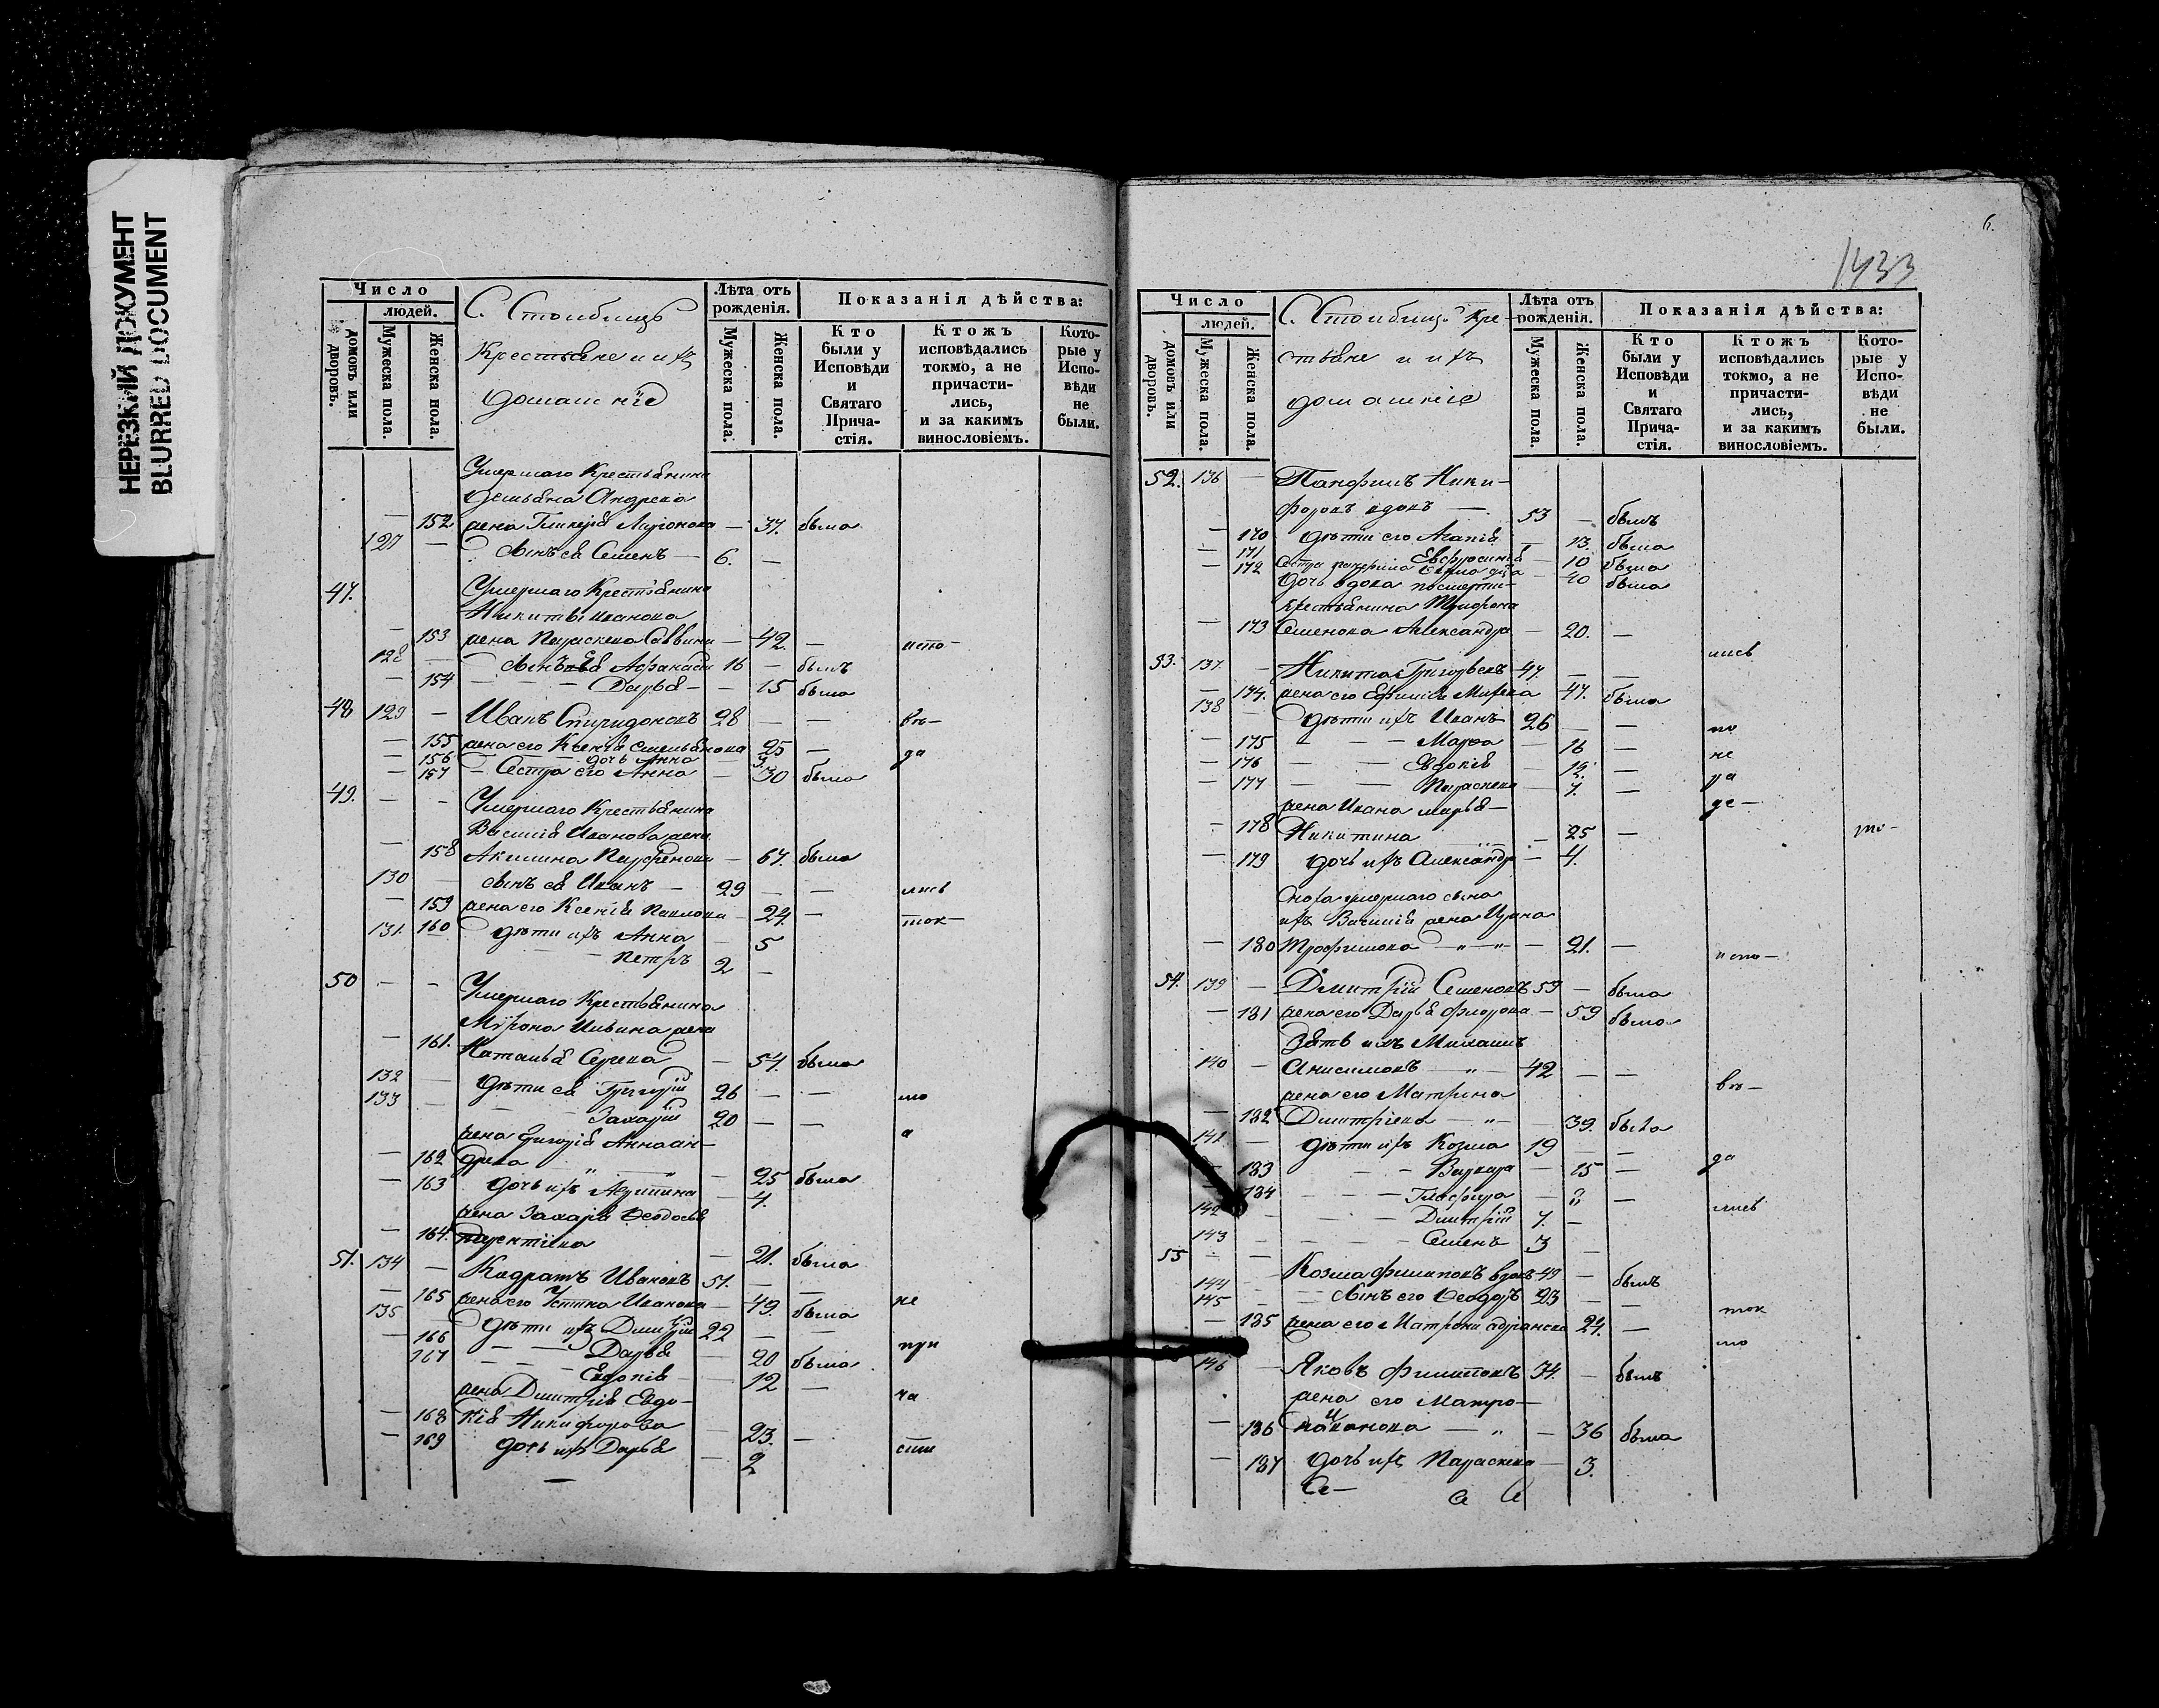 НЕРЕЗКИЙ ДОКУМЕНТ
BLURRED DOCUMENT
Число
людей.
домовъ или дворовъ.
Мужеска пола.
Женска пола.
С. Столбищъ
Крестьяне и ихъ
домашніе
Лѣта отъ рожденія.
Мужеска пола.
Женска пола.
Показанія дѣйства:
Кто были у Исповѣди и Святаго Прича-стія.
Ктожъ исповѣдались токмо, а не причасти-лись, и за какимъ винословіемъ.
Кото-рые у Испо-вѣди не были.
Умершаго Крестьянина
Демьяна Андреева
— 152 жена Гликерія — 37. была
127 — сынъ ея Семенъ — 6. —
47. Умершаго Крестьянина
Никиты Иванова
— 153 жена Параскева Саввина — 42. — испо-
128 — сынъ ея Афанасій 16 — былъ
— 154 — — Дарья — — 15 была
48 129 — Иванъ Спиридоновъ 28 — — вѣ-
— 155 жена его Ксенія Емельянова 25 — да
— 156 — дочь Анна — 3.
— 157 — Сестра его Анна — 30 была
49. — - Умершаго Крестьянина
Василія Иванова жена
— 158 Акилина Парфенова — 67. была
130 — сынъ ея Иванъ — 29 — — лись
— 159 жена его Ксенія Павлова — 24. — ток-
131. 160 дѣти ихъ Анна — 5
— Петръ 2 —
50 - - Умершаго Крестьянина
Мѵрона Ильина жена
— 161. Наталья — 54. была
132 — дѣти ея Григорій 26 — — мо
133 — — Захарій 20 — — а
жена Григорія Анна Ан-
— 162 дреева — " — — 25 была
— 163 дочь ихъ — 4.
жена Захарія Ѳеодосья
— 164. Терентіева — 21. была
51. 134 — Кодратъ Ивановъ 51. — —
— 165 жена его Устина Иванова — 49. была не
135 — дѣти ихъ Дмитрій 22 — — при
— 166 — — Дарья — 20 была
167 — — Евдокія — 12 — ча
жена Дмитрія Евдо-
— 168 кія Никифорова — 23. — сти
— 169 дочь ихъ Дарья — 2
—
6.
1433
Число
людей.
домовъ или дворовъ.
Мужеска пола.
Женска пола.
С. Столбищъ Кре-
стьяне и ихъ
домашніе
Лѣта отъ рожденія.
Мужеска пола.
Женска пола.
Показанія дѣйства:
Кто были у Исповѣди и Святаго Прича-стія.
Ктожъ исповѣдались токмо, а не причасти-лись, и за какимъ винословіемъ.
Кото-рые у Испо-вѣди не были.
52. 136 — Панфилъ Ники-
форовъ вдовъ — 53 — былъ
— 170 дѣти его Агапія — 13. была
— 171 Евфросинія — 10 была
— 172 Сестра Панфила — 40 была
дочь вдова
Крестьянина Трифона
— 173 Семенова Александра — 20. — лись
53. 137. — Никита Григорьевъ 47. — —
— 174. жена его Ефимія — 47. была
138 — дѣти ихъ Иванъ 26 — — по
— 175 - — — Марѳа — 16 — не
— 176 — — Евдокія — 12. — ра
— 177 — — Параскева — 7. — де-
жена Ивана Марья —
— 178 Никитина — 25 —
— 179 дочь ихъ Александра — 4.
Сноха умершаго сына
ихъ Василія жена Ирина
— 180 Трофимова — " — " — — 21. — испо-
54. 139 — Дмитрій Семеновъ 59 — была
— 181 жена его Дарья Фиорова — 59 была
Зять ихъ Михаилъ
140 — Анисимовъ — " — 42 — — вѣ-
жена его Матрона
— 182 Дмитріева — " — — 39. была
141 — дѣти ихъ Козма 19 — — да
— 183 — — Варвара — 15 —
— 184 — — Глафира — — лись
142 — — — Дмитрій 7. —
143 — — — Семенъ 3 —
55 — — Козма Филиповъ вдовъ 49 — былъ
144
145 — — сынъ его Ѳеодоръ 23 — — ток
— 185 жена его Матрона 24. — мо
146 — Яковъ Филиповъ 34. — былъ
жена его Матро-
— 186 на Иванова — " — — 36 была
— 187 дочь ихъ Параскева — 3.